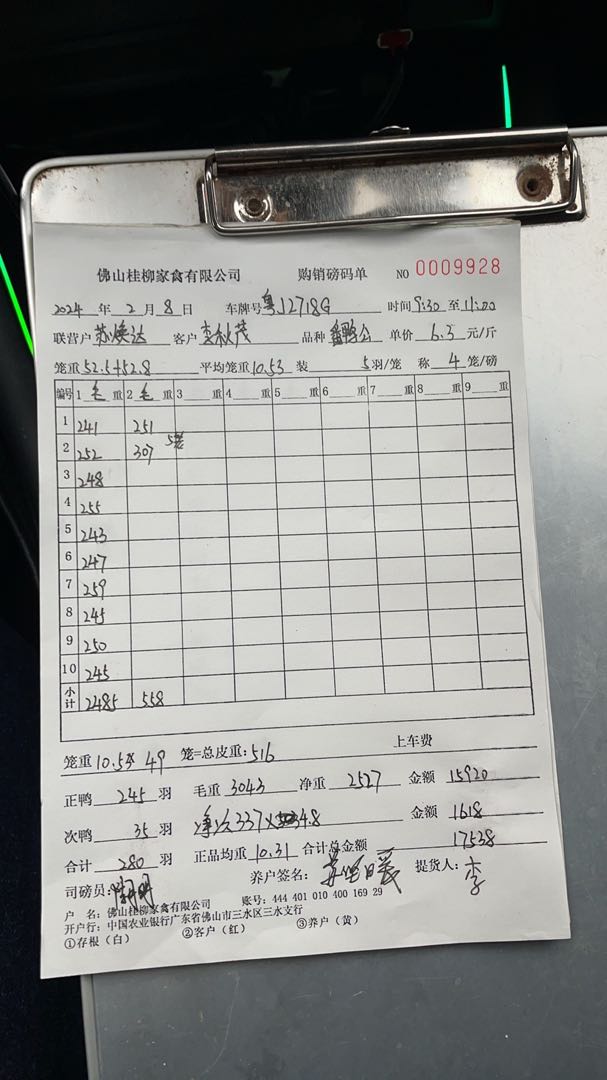 佛山桂柳家禽有限公司 购销磅码单 NO 0009928
2024 年 2 月 8 日 车牌号 粤J2718G 时间 9:30 至 11:00
联营户 苏焕达 客户 李秋茂 品种 番鸭公 单价 6.3 元/斤
笼重 52.5+52.8 平均笼重 10.53 装 5 羽/笼 称 4 笼/磅
编号 1 毛 重 2 毛 重 3 重 4 重 5 重 6 重 7 重 8 重 9 重
1 241 251
2 252 307 5笼
3 248
4 255
5 243
6 247
7 259
8 245
9 250
10 245
小计 2485 558
笼重 10.53 49 笼=总皮重: 516 上车费
正鸭 245 羽 毛重 3043 净重 2527 金额 15920
次鸭 35 羽 净次337× 4.8 金额 1618
合计 280 羽 正品均重 10.31 合计总金额 17538
司磅员: 养户签名: 提货人: 李
户 名: 佛山桂柳家禽有限公司 账号: 444 401 010 400 169 29
开户行: 中国农业银行广东省佛山市三水区三水支行
①存根（白） ②客户（红） ③养户（黄）